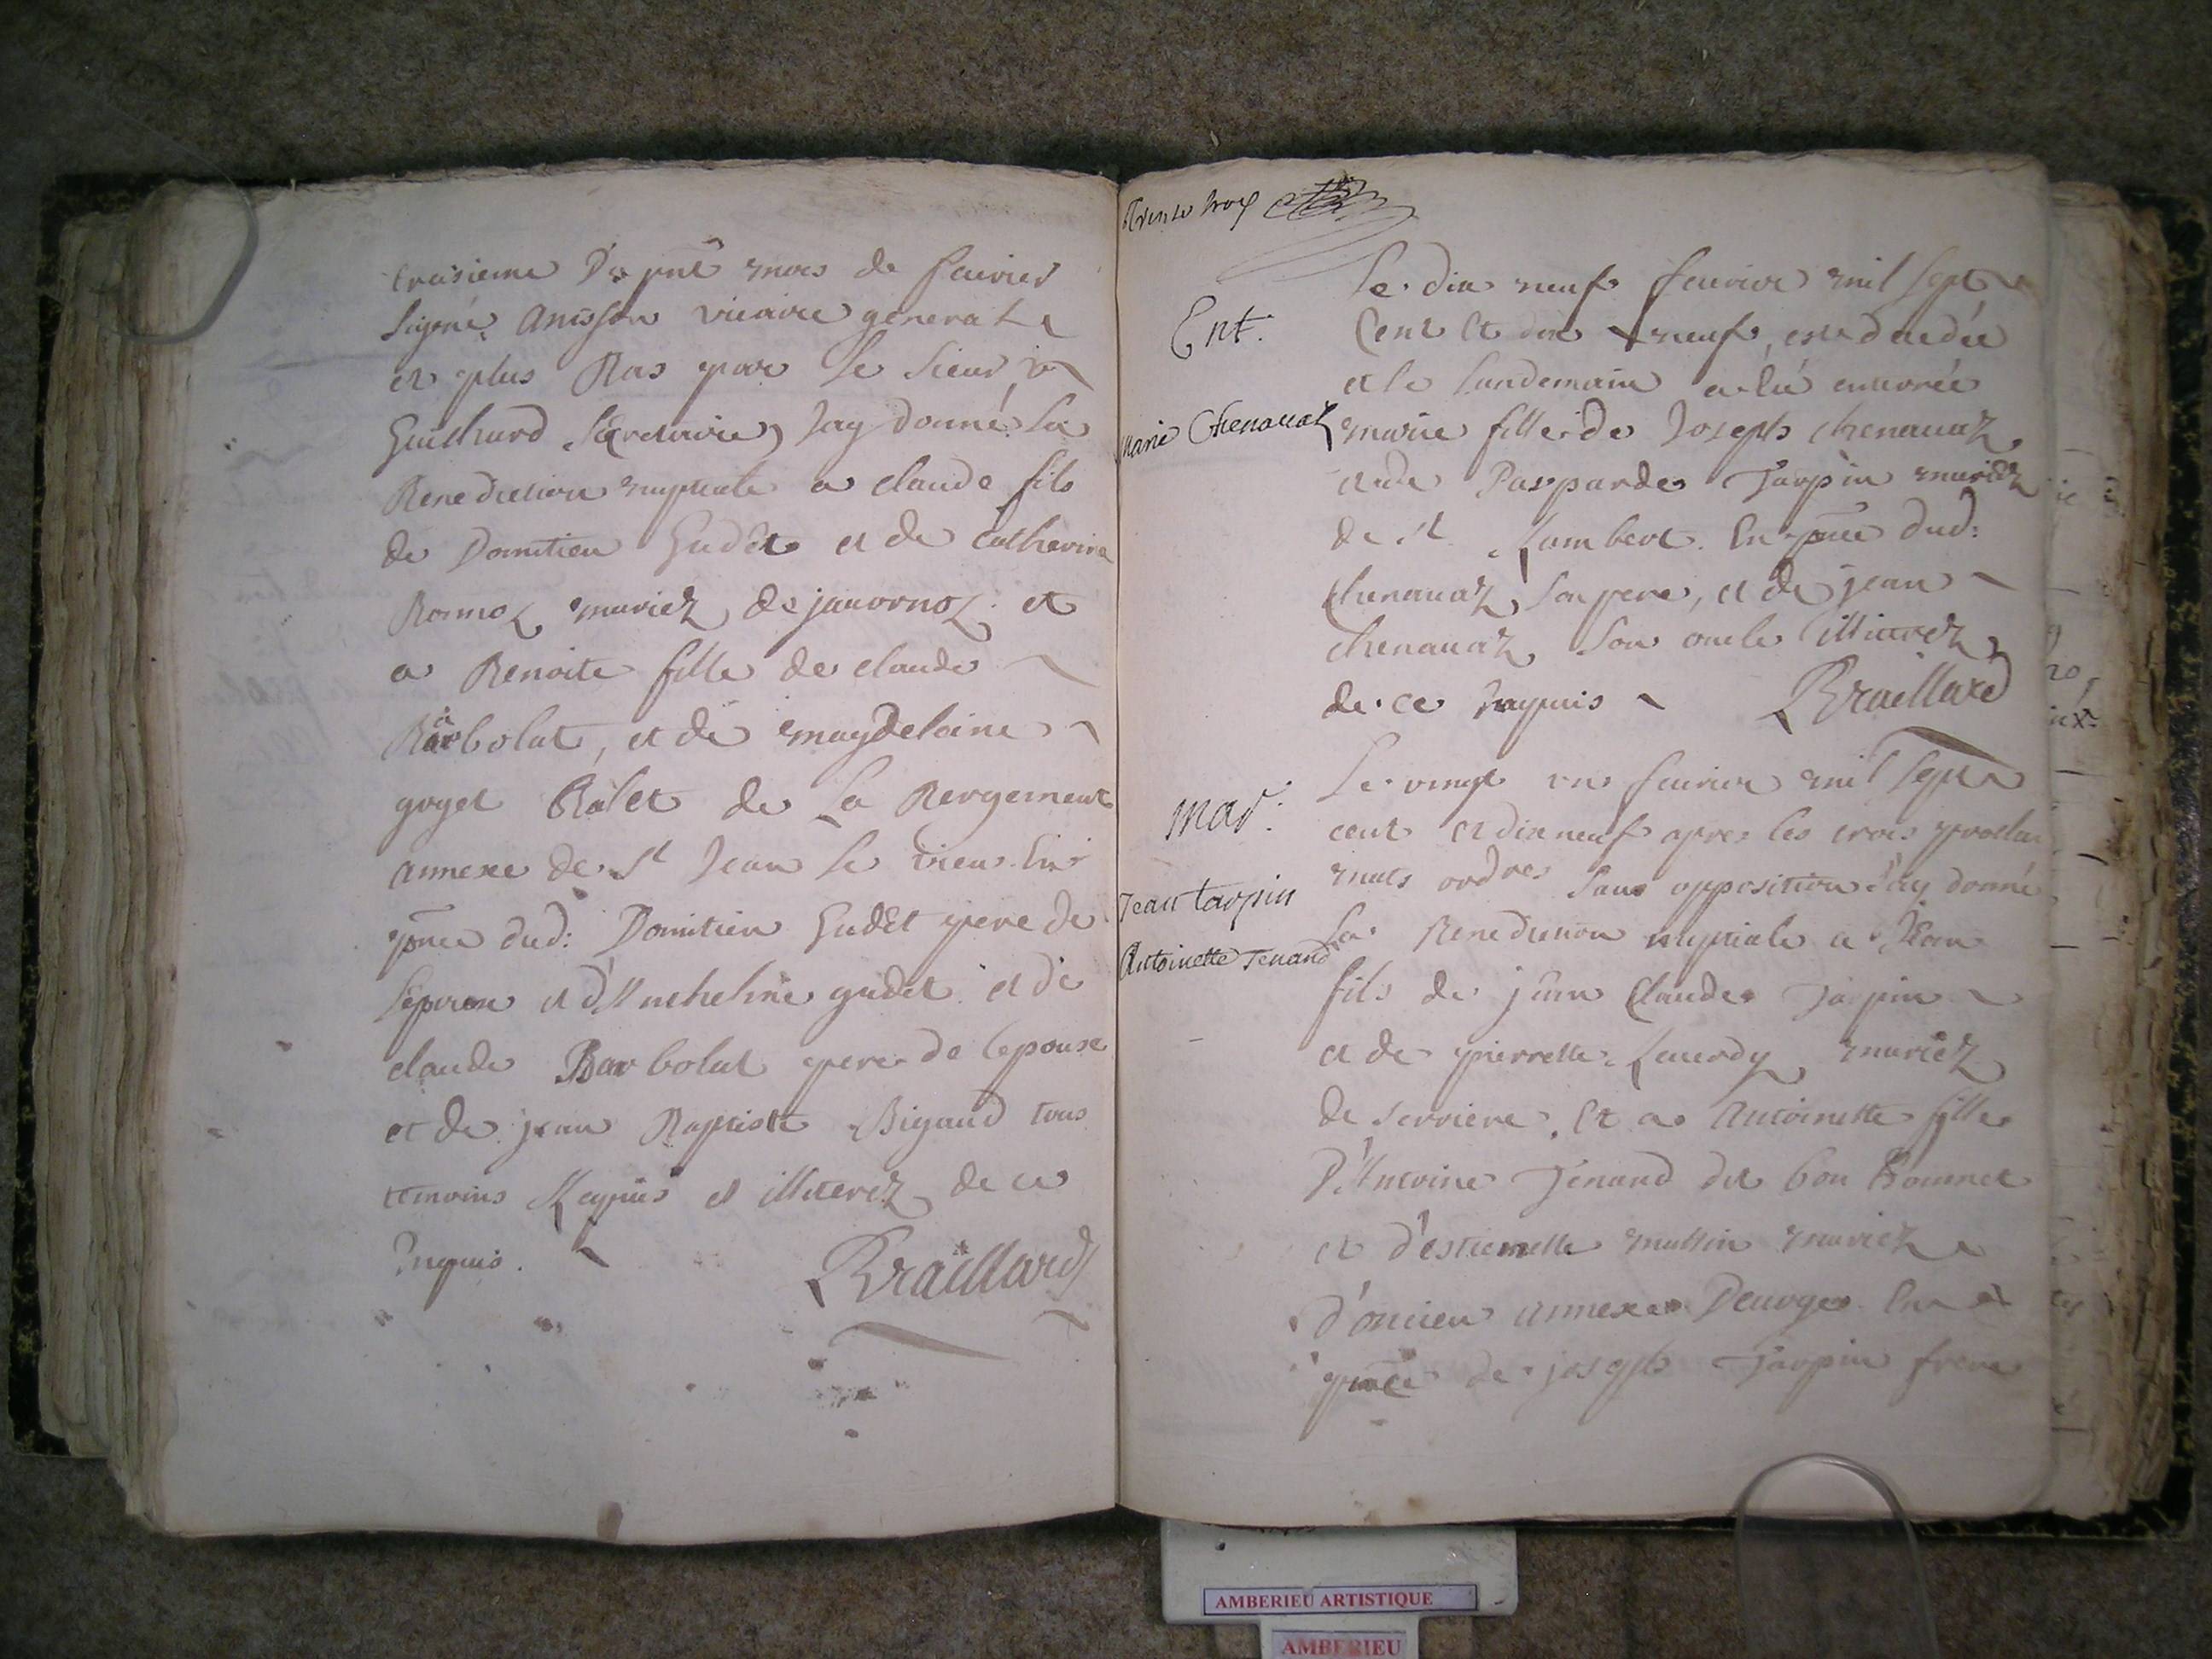 troisieme du pnt mois de feuvrier
signé Anisson vicaire general
et plus Bas par le sieur
Guichard secretaire, Jay donné La
Benediction nuptiale a claude fils
de Domitien Gudet et de Catherine
Bonnoz mariez de jauvornoz et
a Benoite fille de claude
Barbolat, et de magdeleine
goyet Balet de La Bergement
annexe de St Jean le vieux En
pnce dud: Domitien Gudet pere de
L'epoux et d'Anthelme gudet et de
claude Barbolat pere de lepouse
et de jean Baptiste Bigaud tous
temoins Requis et illiterez de ce
Enquis.
Braillard
trente trois
Ent.
Marie Chenavaz
Le dix neuf feuvrier mil sept
Cent et dix neuf, est decedée
et le Lundemain a eté enterrée
marie fille de Joseph chenavaz
et de Gasparde Tarpin mariez
de St Rambert. En pnce dud:
Chenavaz son pere, et de jean
chenavaz son oncle illiterez
de ce Enquis
Braillard
mar.
Jean tarpin
Antoinette Tenand
Le vingt un feuvrier mil sept
cent et dix neuf apres les trois procla
mats ordres sans opposition Jay donné
La Benediction nuptiale a Jean
fils de jean Claude Tarpin
et de pierrette mariez
de serriere. Et a Antoinette fille
D'Antoine Tenand dit bon Bonnet
et d'estiennette mariez
d'oncieu annexe Deuoges En
pnce de joseph Tarpin frere
AMBERIEU ARTISTIQUE
AMBERIEU